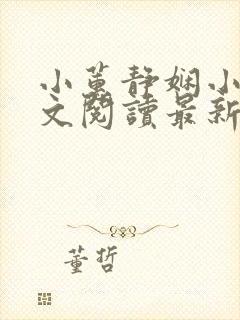 小蕙静娴小
文閱讀最新
董哲